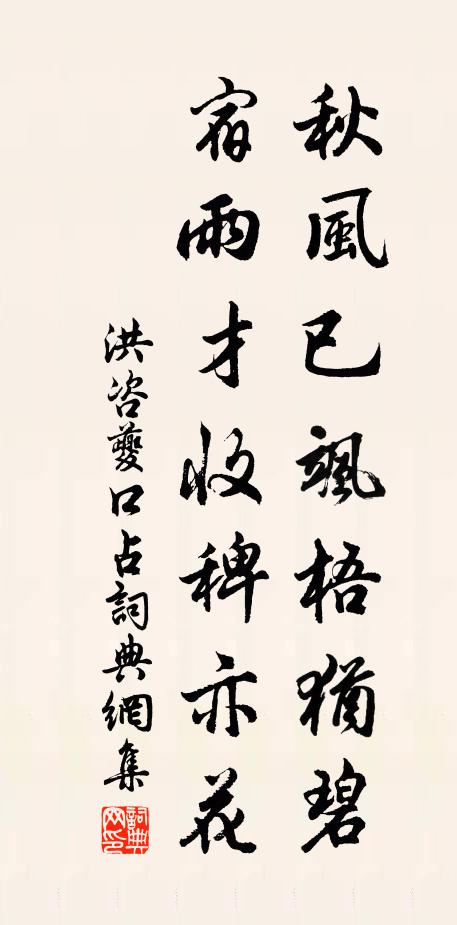 秋風已颯梧猶碧
宿雨才收稗亦花
洪咨夔口占詞典網集
詞典網印